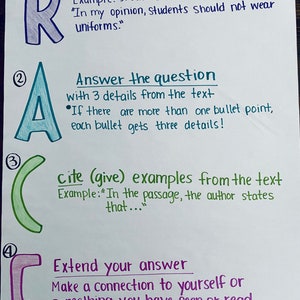 R Example:
"In my opinion, students should not wear
uniforms."
② Answer the question
A with 3 details from the text
• If there are more than one bullet point,
each bullet gets three details!
③ Cite (give) examples from the text
C Example: "In the passage, the author states
that..."
④ Extend your answer
Make a connection to yourself or
something you have seen or read